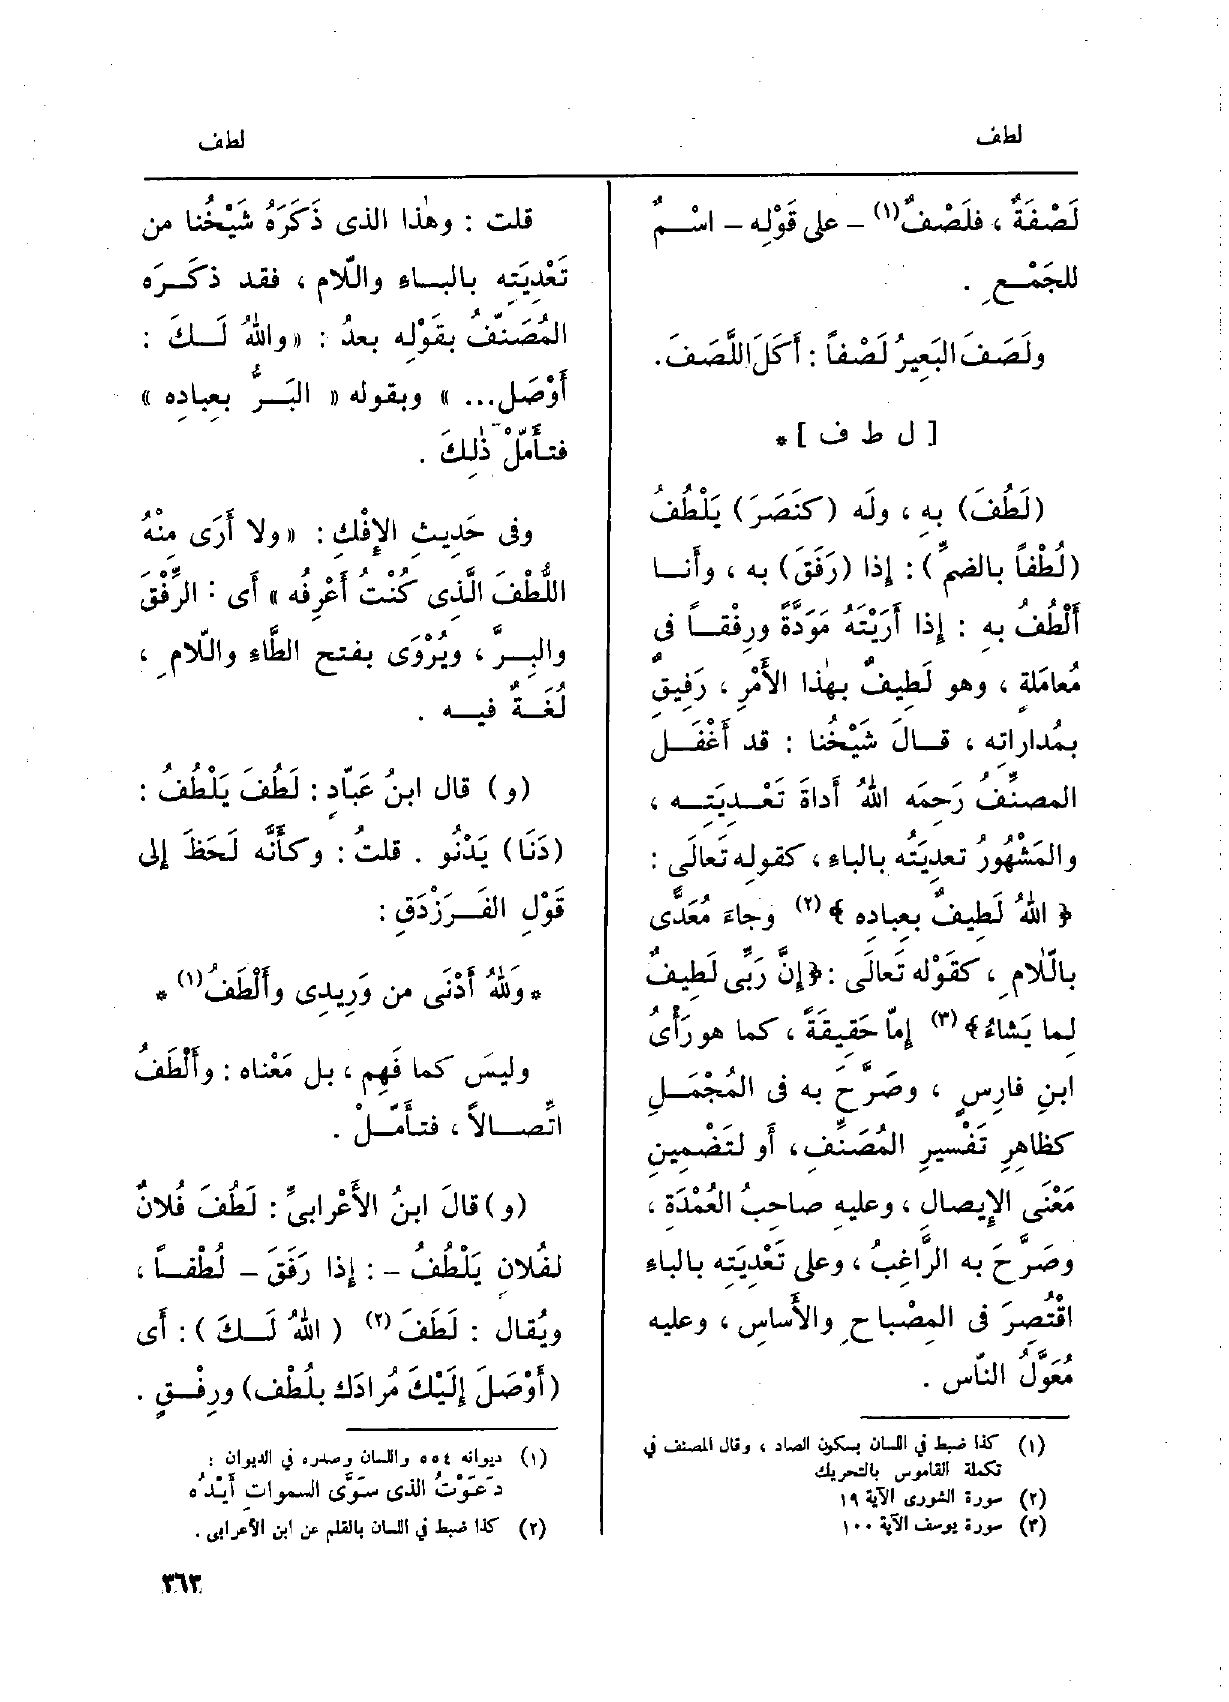 لطف
لطف
لَصْفَةٌ ، فلَصْفٌ(١) – على قَوْلِه – اسْمٌ
للجَمْعِ .
ولَصَفَ البَعِيرُ لَصْفاً : أَكَلَ اللَّصَفَ .
[ ل ط ف ] *
(لَطُفَ) بِه ، ولَه (كنَصَرَ) يَلْطُفُ
(لُطْفاً بالضمِّ) : إذا (رَفَقَ) به ، وأَنا
أَلْطُفُ بِه : إذا أَرَيْتَهُ مَوَدَّةً ورِفْقاً فى
مُعامَلَةٍ ، وهو لَطِيفٌ بهٰذا الأَمْرِ ، رَفِيقٌ
بمُداراتِه ، قالَ شَيْخُنا : قد أَغْفَل
المصنِّفُ رَحِمَه اللهُ أَداةَ تَعْدِيَتِه ،
والمَشْهُورُ تعدِيَتُه بالباء ، كقولِه تَعالَى :
﴿ اللهُ لَطِيفٌ بعِبادِه ﴾(٢) وجاءَ مُعَدًّى
بالّلامِ ، كقَوْلِه تَعالَى : ﴿إِنَّ رَبِّى لَطِيفٌ
لِما يَشاءُ﴾(٣) إِمّا حَقِيقَةً ، كما هو رَأْىُ
ابنِ فارِسٍ ، وصَرَّحَ به فى المُجْمَلِ
كظاهِرِ تَفْسيرِ المُصَنِّفِ، أَو لتَضْمِينِ
مَعْنَى الإِيصالِ ، وعليهِ صاحِبُ العُمْدَة ،
وصَرَّحَ به الرَّاغِبُ ، وعلى تَعْدِيَتِه بالباءِ
اقْتُصِرَ فى المِصْباحِ والأَساسِ ، وعليه
مُعَوَّلُ النّاسِ .
(١) كذا ضبط في اللسان بسكون الصاد ، وقال المصنف في
تكملة القاموس بالتحريك
(٢) سورة الشورى الآية ١٩
(٣) سورة يوسف الآية ١٠٠
قلت : وهٰذا الذى ذَكَرَهُ شَيْخُنا من
تَعْدِيَتِه بالباءِ والّلامِ ، فقد ذكَرَه
المُصَنّفُ بقَوْلِه بعدُ : «واللهُ لَكَ :
أَوْصَل...» وبقوله « البَرُّ بعِبادِه »
فتأَمّلْ ذٰلِكَ .
وفى حَدِيثِ الإِفْكِ : «ولا أَرَى مِنْهُ
اللُّطْفَ الَّذِى كُنْتُ أَعْرِفُه » أَى : الرِّفْقَ
والبِرَّ ، ويُرْوَى بفتحِ الطّاءِ والّلامِ ،
لُغَةٌ فيه .
(و) قال ابنُ عَبّادٍ : لَطُفَ يَلْطُفُ :
(دَنَا) يَدْنُو . قلتُ : وكأَنَّه لَحَظَ إلى
قَوْلِ الفَرَزْدَقِ :
*وللهُ أَدْنَى من وَرِيدِى وأَلْطَفُ(١) *
وليسَ كما فَهِم ، بل مَعْناه : وأَلْطَفُ
اتِّصالاً ، فتأَمّلْ .
(و) قالَ ابنُ الأَعْرابِىِّ : لَطُفَ فُلانٌ
لفُلانٍ يَلْطُفُ – : إِذا رَفَقَ – لُطْفاً ،
ويُقال : لَطَفَ(٢) ( اللهُ لَكَ ) : أَى
(أَوْصَلَ إِلَيْكَ مُرادَك بلُطْف) ورِفْقٍ .
(١) ديوانه ٥٥٤ واللسان وصدره في الديوان :
دَعَوْتُ الذى سَوَّى السموات أَيْدُه
(٢) كذا ضبط في اللسان بالقلم عن ابن الأعرابى .
٣٦٣